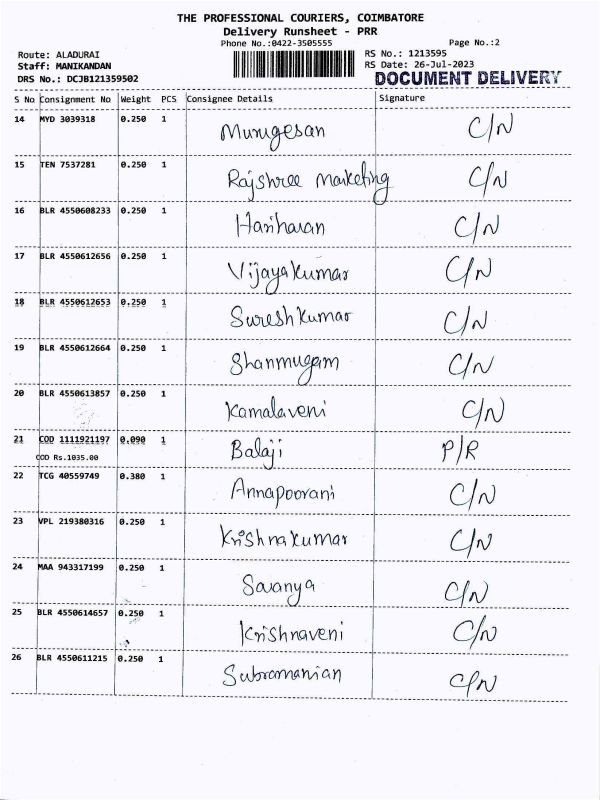 THE PROFESSIONAL COURIERS, COIMBATORE
Delivery Runsheet - PRR
Phone No.:0422-3505555 Page No.:2
Route: ALADURAI RS No.: 1213595
Staff: MANIKANDAN RS Date: 26-Jul-2023
DRS No.: DCJB121359502 DOCUMENT DELIVERY
S No Consignment No Weight PCS Consignee Details Signature
14 MYD 3039318 0.250 1 Murugesan C/N
15 TEN 7537281 0.250 1 Rajshree Marketing C/N
16 BLR 4550608233 0.250 1 Hariharan C/N
17 BLR 4550612656 0.250 1 Vijayakumar C/N
18 BLR 4550612653 0.250 1 Sureshkumar C/N
19 BLR 4550612664 0.250 1 Shanmugam C/N
20 BLR 4550613857 0.250 1 Kamalaveni C/N
21 COD 1111921197 0.090 1 Balaji P/R
COD Rs.1035.00
22 TCG 40559749 0.380 1 Annapoorani C/N
23 VPL 219380316 0.250 1 Krishnakumar C/N
24 MAA 943317199 0.250 1 Saranya C/N
25 BLR 4550614657 0.250 1 Krishnaveni C/N
26 BLR 4550611215 0.250 1 Subramanian C/N